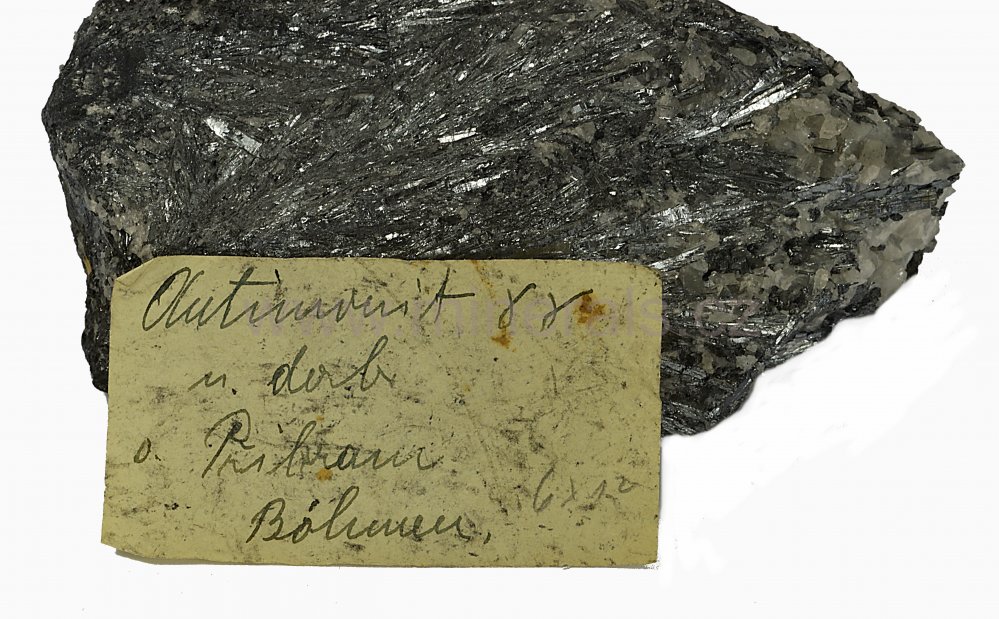 Antimonit xx
u. derb
o. Pribram
Böhmen.
6x12
www.minerals.cz